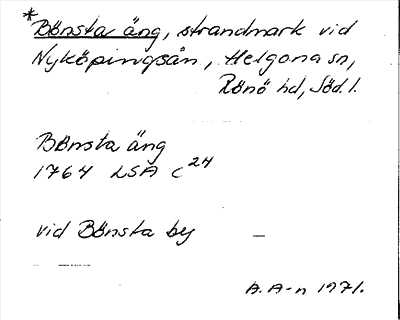 *Bönsta äng, strandmark vid
Nyköpingsån, Helgona sn,
Rönö hd, Söd. l.
Bönsta äng
1764 LSA C24
vid Bönsta by
A. A-n 1971.